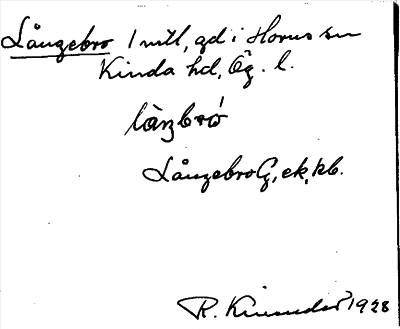 Långebro 1 mtl, gd i Horns sn
Kinda hd, Ög. l.
Långebro G, ek, kb.
R. 1928